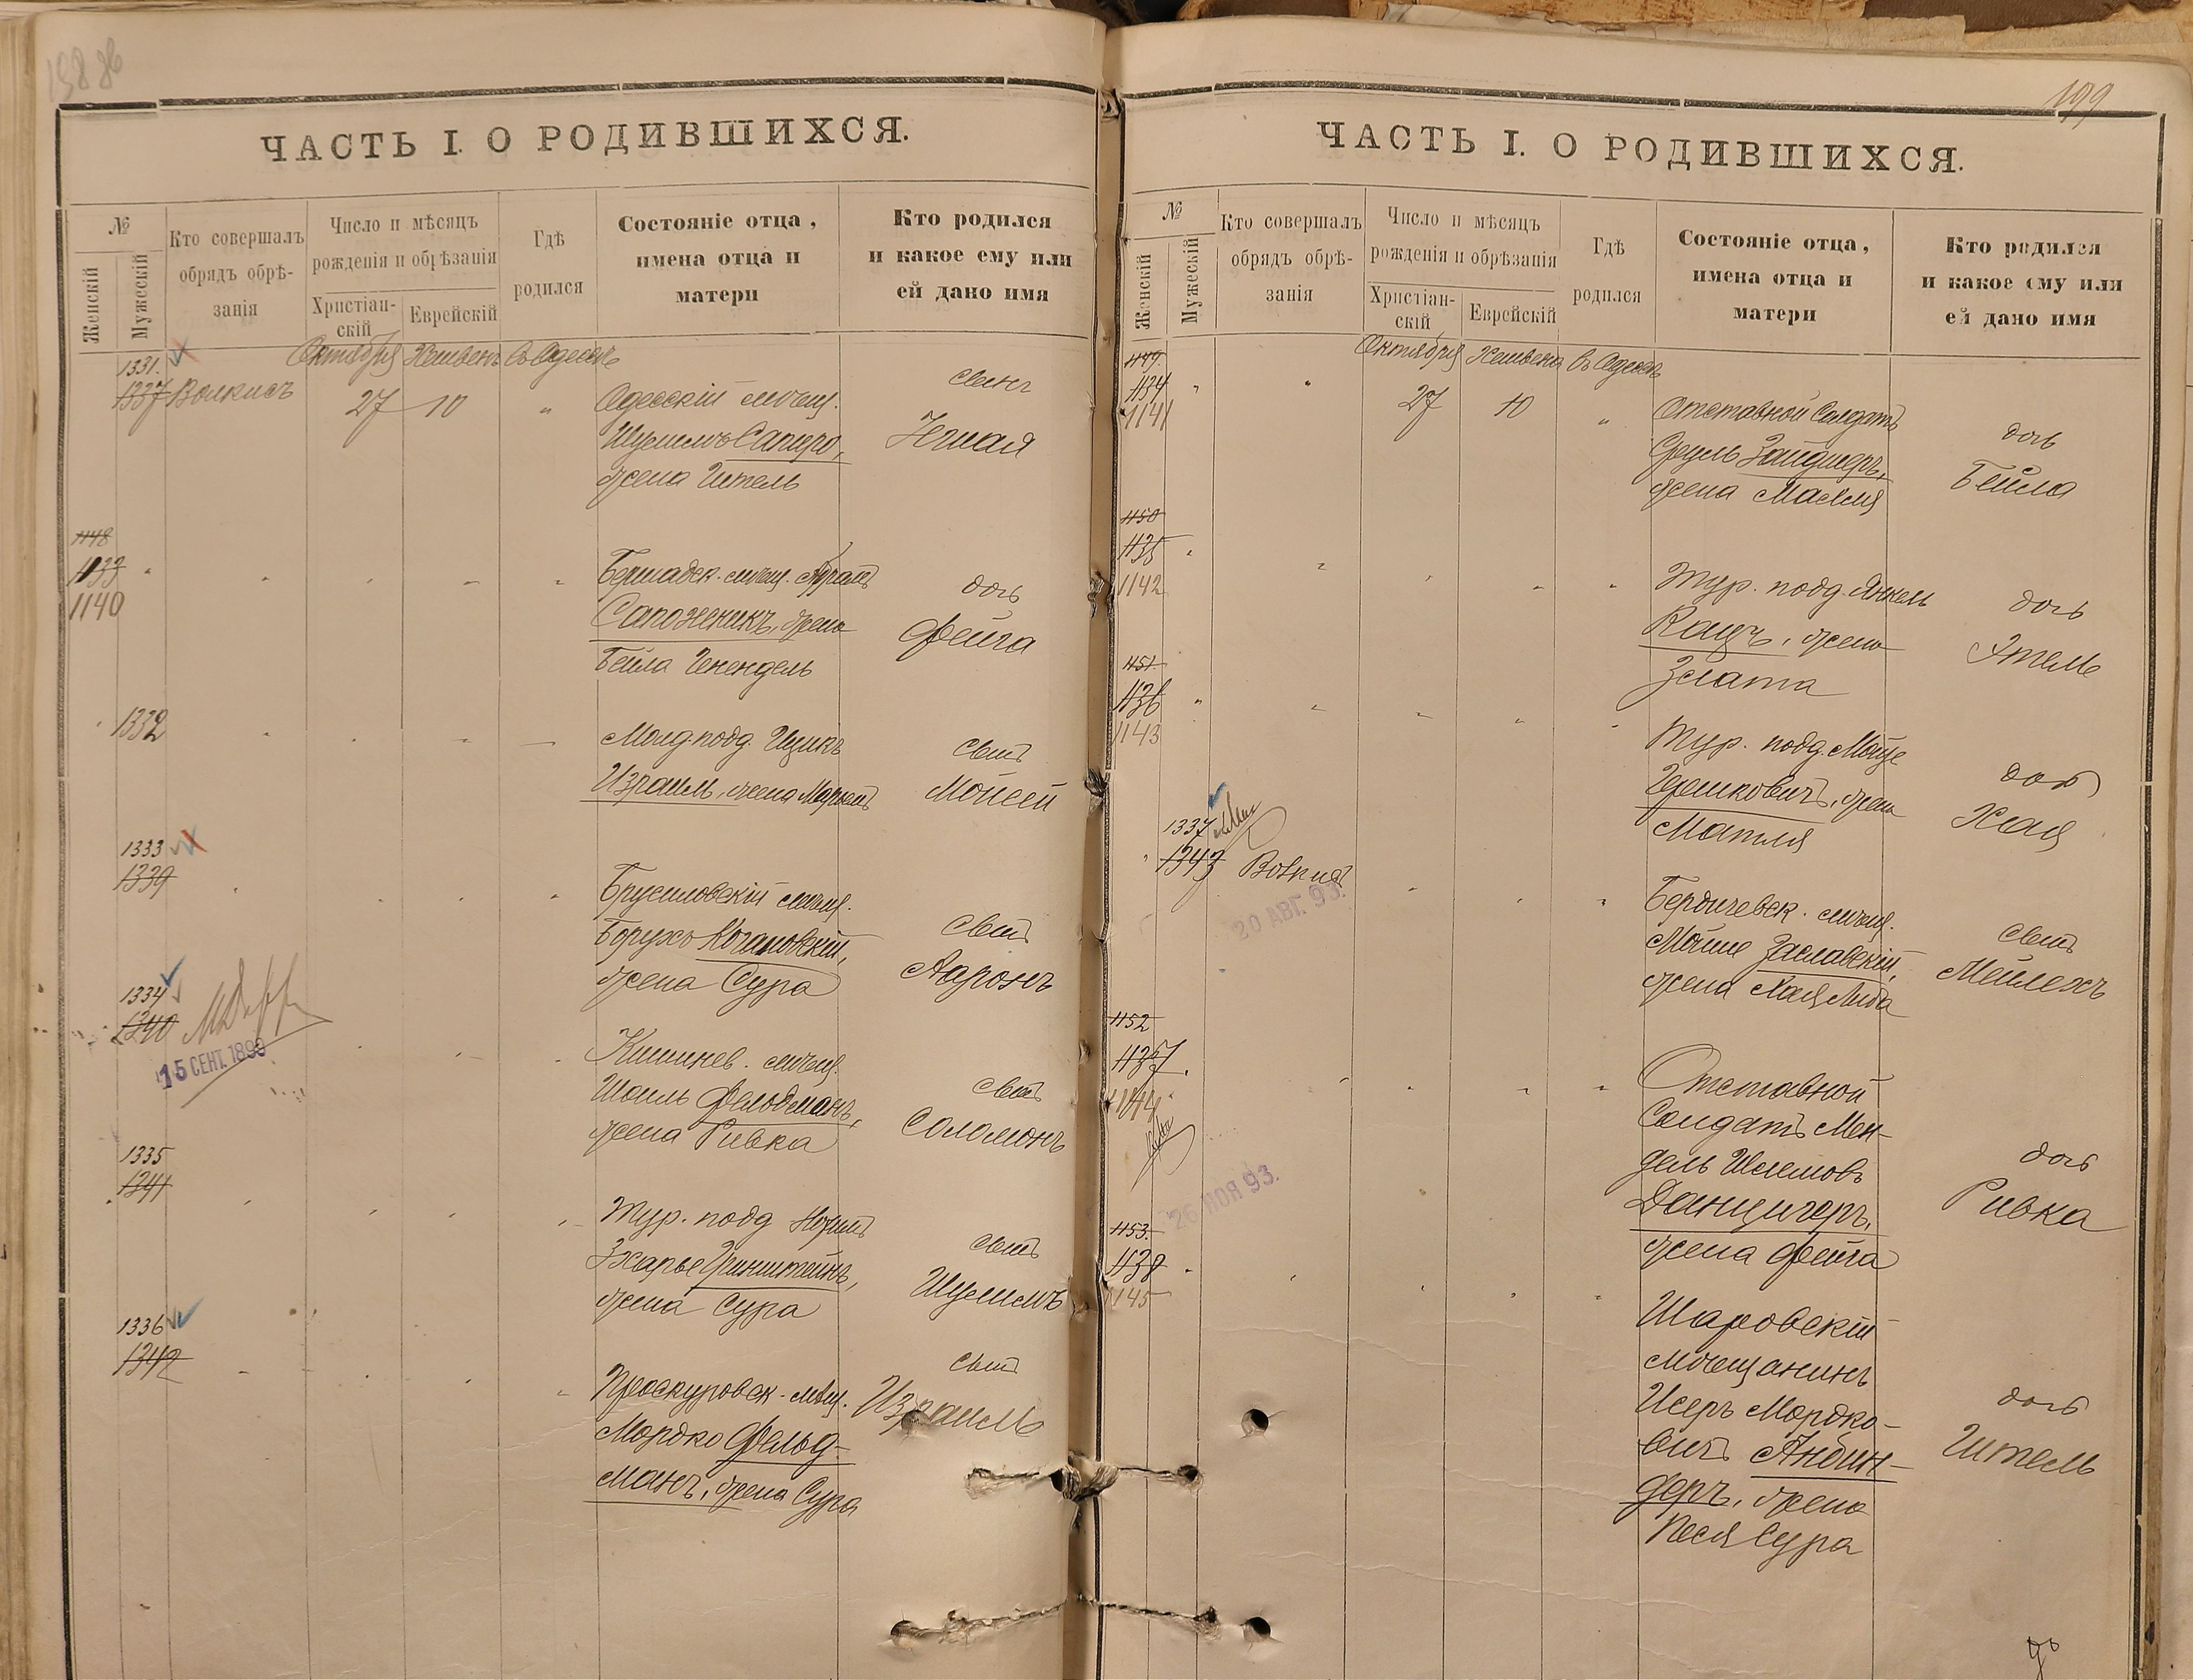 198 об
ЧАСТЬ I. О РОДИВШИХСЯ.
№
Женскій
Мужескій
Кто совершалъ
обрядъ обрѣ-
занія
Число и мѣсяцъ
рожденія и обрѣзанія
Христіан-
скій
Еврейскій
Гдѣ
родился
Состояніе отца,
имена отца и
матери
Кто родился
и какое ему или
ей дано имя
Октября Хешвенъ въ Одессѣ
1331.
1337 Волкисъ 27 10 " Одесскій мѣщ. сынъ
Шулимъ Сапиро,
жена Ител
1148
1133
1140
Бершадск. мѣщ. Абрамъ дочь
Сапожникъ, жена Фейга
Бейла Генендель
1332
Молд. подд. Ицикъ сынъ
Израиль, жена Марьемъ Мойсей
1333
1339
Брусиловскій мѣщ. сынъ
Борухъ Качановскій, Аронъ
жена Сура
1334
1340
15 СЕНТ. 1890
Кишинев. мѣщ. сынъ
Шоиль Фельдманъ, Соломонъ
жена Ривка
1335
1341
Тур. подд сынъ
Гринштейнъ, Шулимъ
жена Сура
1336
1342
Проскуровск. мѣщ. сынъ
Мордко Фельд- Израиль
манъ, жена Сура
199
ЧАСТЬ I. О РОДИВШИХСЯ.
№
Женскій
Мужескій
Кто совершалъ
обрядъ обрѣ-
занія
Число и мѣсяцъ
рожденія и обрѣзанія
Христіан-
скій
Еврейскій
Гдѣ
родился
Состояніе отца,
имена отца и
матери
Кто родился
и какое ему или
ей дано имя
Октября Хешвена въ Одессѣ
1149.
1134
1141
27 10 " Отставной Солдатъ дочь
Сруль Зайднеръ, Бейла
жена Маля
1150
1135
1142
Тур. подд. Янкель дочь
Кацъ, жена Этель
Злата
1151.
1136
1143
Тур. подд. Мойше дочь
Гершковичъ, жена Хая
Матля
1337
1343 Волкисъ
20 АВГ. 93.
Бердичевск. мѣщ. сынъ
Мойше Заславскій, Мейлехъ
жена Хая Либа
1152
1137
1144
Отставной
Солдатъ Мен-
дель Шлемовъ дочь
Данцигеръ, Ривка
жена Фейга
26 НОЯ 93.
1153.
1138
1145
Шаровскій
мѣщанинъ
Исеръ Мордко- дочь
вичъ Анбин- Итель
деръ, жена
Песя Сура